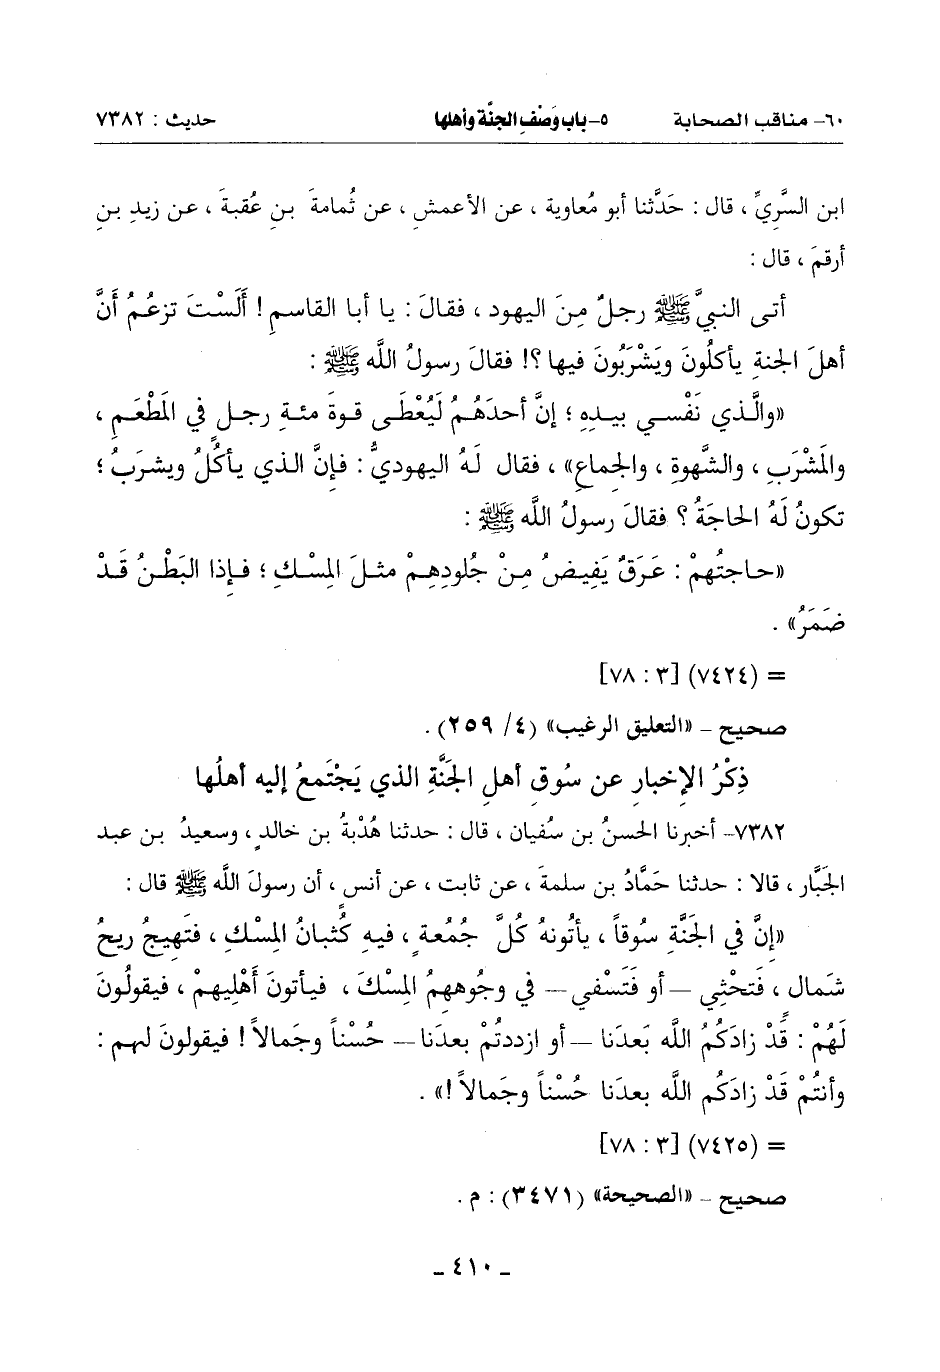 ٦٠- مناقب الصحابة ٥- باب وَصْفِ الجنَّة وأهلها حديث : ٧٣٨٢
ابن السَّرِيِّ ، قال : حَدَّثنا أبو مُعاوية ، عن الأعمشِ ، عن ثُمامةَ بنِ عُقبةَ ، عن زيدِ بنِ
أرقمَ ، قال :
أتى النبيَّ ﷺ رجلٌ مِنَ اليهود ، فقالَ : يا أبا القاسمِ ! أَلَسْتَ تزعُمُ أَنَّ
أهلَ الجنةِ يأكلُونَ ويَشْرَبُونَ فيها ؟! فقالَ رسولُ اللَّه ﷺ :
«والَّذي نَفْسي بيدِهِ ؛ إنَّ أحدَهُمُ لَيُعْطَى قوةَ مئةِ رجلٍ في المَطْعَمِ ،
والمَشْرَبِ ، والشَّهوةِ ، والجماعِ» ، فقال لَهُ اليهوديُّ : فإنَّ الذي يأكُلُ ويشرَبُ ؛
تكونُ لَهُ الحاجَةُ ؟ فقالَ رسولُ اللَّه ﷺ :
«حاجتُهمْ : عَرَقٌ يَفِيضُ مِنْ جُلودِهِمْ مثلَ المِسْكِ ؛ فإذا البَطْنُ قَدْ
ضَمَرُ» .
= (٧٤٢٤) [٣ : ٧٨]
صحيح - «التعليق الرغيب» (٤/ ٢٥٩) .
ذِكْرُ الإخبارِ عن سُوقِ أهلِ الجَنَّةِ الذي يَجْتَمعُ إليه أهلُها
٧٣٨٢- أخبرنا الحسنُ بن سُفيان ، قال : حدثنا هُدْبةُ بن خالدٍ ، وسعيدُ بن عبد
الجَبَّار ، قالا : حدثنا حَمَّادُ بن سلمةَ ، عن ثابت ، عن أنس ، أن رسولَ اللَّه ﷺ قال :
«إنَّ في الجَنَّةِ سُوقاً ، يأتُونهُ كُلَّ جُمُعةٍ ، فيهِ كُثبانُ المِسْكِ ، فتَهِيجُ ريحُ
شَمالٍ ، فَتحْثِي — أو فَتَسْفي — في وجُوههِمُ المِسْكَ ، فيأتونَ أَهْلِيهِمْ ، فيقولُونَ
لَهُمْ : قَدْ زادَكُمُ اللَّه بَعدَنا — أو ازددتُمْ بعدَنا — حُسْناً وجَمالاً ! فيقولونَ لهم :
وأنتُمْ قَدْ زادَكُم اللَّه بعدَنا حُسْناً وجَمالاً !» .
= (٧٤٢٥) [٣ : ٧٨]
صحيح - «الصحيحة» (٣٤٧١) : م .
- ٤١٠ -